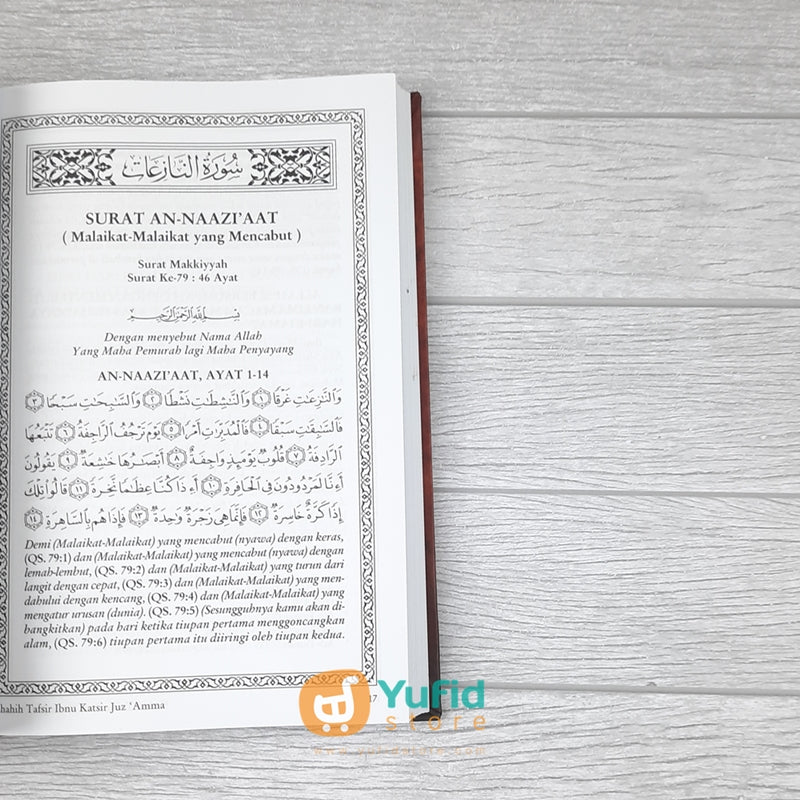 سُورَةُ النَّازِعَاتِ
SURAT AN-NAAZI'AAT
( Malaikat-Malaikat yang Mencabut )
Surat Makkiyyah
Surat Ke-79 : 46 Ayat
بِسْمِ اللَّهِ الرَّحْمَٰنِ الرَّحِيمِ
Dengan menyebut Nama Allah
Yang Maha Pemurah lagi Maha Penyayang
AN-NAAZI'AAT, AYAT 1-14
وَالنَّازِعَاتِ غَرْقًا ۝١ وَالنَّاشِطَاتِ نَشْطًا ۝٢ وَالسَّابِحَاتِ سَبْحًا ۝٣
فَالسَّابِقَاتِ سَبْقًا ۝٤ فَالْمُدَبِّرَاتِ أَمْرًا ۝٥ يَوْمَ تَرْجُفُ الرَّاجِفَةُ ۝٦ تَتْبَعُهَا
الرَّادِفَةُ ۝٧ قُلُوبٌ يَوْمَئِذٍ وَاجِفَةٌ ۝٨ أَبْصَارُهَا خَاشِعَةٌ ۝٩ يَقُولُونَ
أَءِنَّا لَمَرْدُودُونَ فِي الْحَافِرَةِ ۝١٠ أَءِذَا كُنَّا عِظَامًا نَّخِرَةً ۝١١ قَالُوا تِلْكَ
إِذًا كَرَّةٌ خَاسِرَةٌ ۝١٢ فَإِنَّمَا هِيَ زَجْرَةٌ وَاحِدَةٌ ۝١٣ فَإِذَا هُم بِالسَّاهِرَةِ ۝١٤
Demi (Malaikat-Malaikat) yang mencabut (nyawa) dengan keras,
(QS. 79:1) dan (Malaikat-Malaikat) yang mencabut (nyawa) dengan
lemah-lembut, (QS. 79:2) dan (Malaikat-Malaikat) yang turun dari
langit dengan cepat, (QS. 79:3) dan (Malaikat-Malaikat) yang men-
dahului dengan kencang, (QS. 79:4) dan (Malaikat-Malaikat) yang
mengatur urusan (dunia). (QS. 79:5) (Sesungguhnya kamu akan di-
bangkitkan) pada hari ketika tiupan pertama menggoncangkan
alam, (QS. 79:6) tiupan pertama itu diiringi oleh tiupan kedua.
hahih Tafsir Ibnu Katsir Juz 'Amma
17
Yufid
store